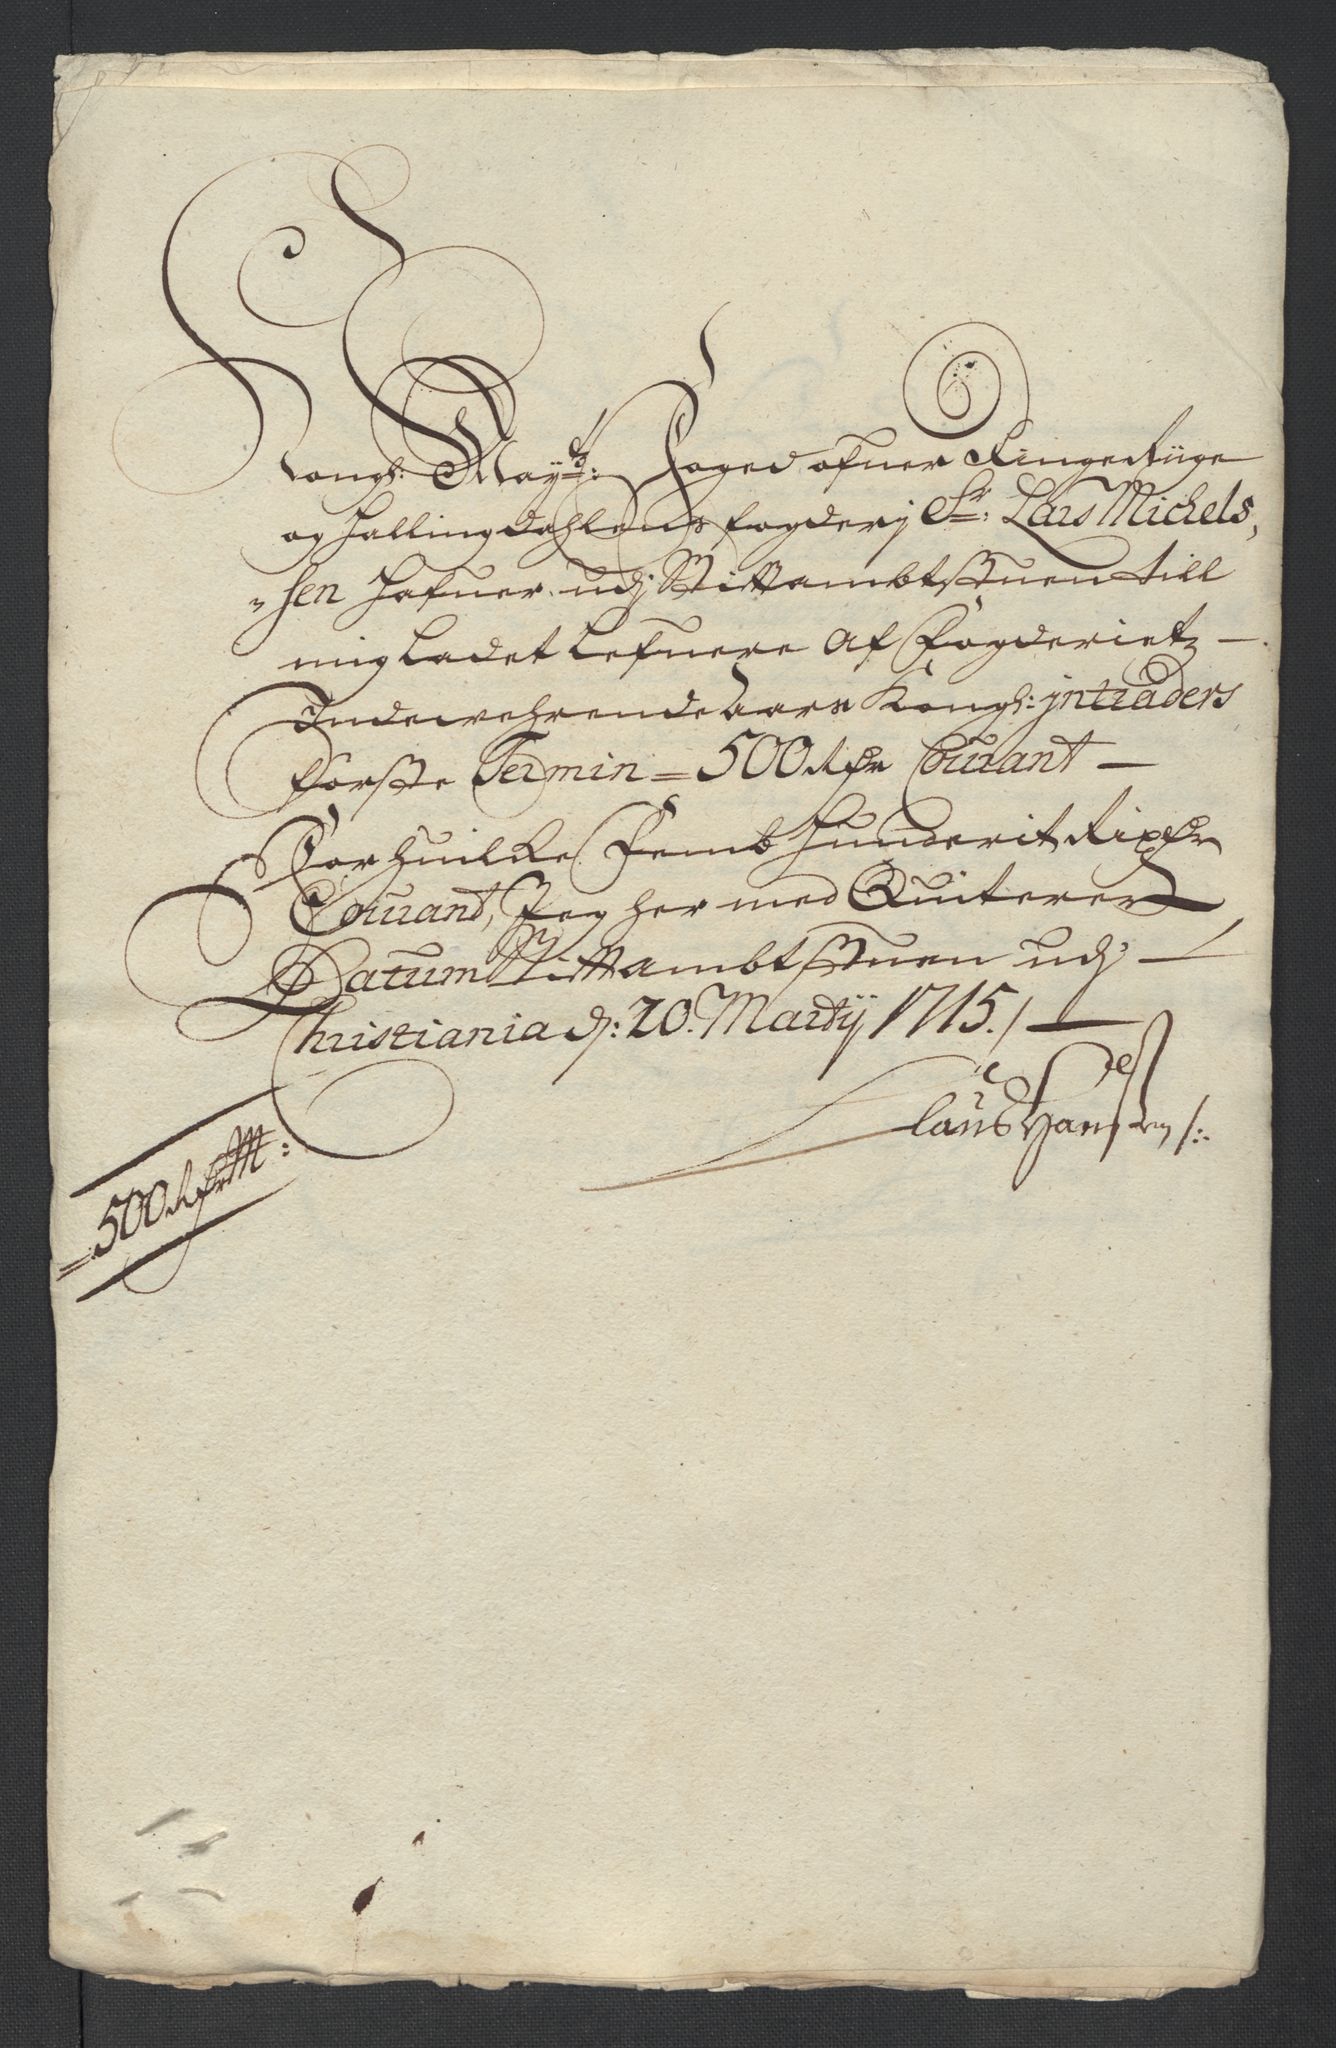 Kongl: Mayts: Foged ofuer Ringerüge
og Hallingdahlens fogderj Sr: Lars Michels,
„sen Hafuer udj Stiftambtstuen till
mig Ladet Lefuere Af Fogderietz —
Indewehrende Aars Kongl: jntraders
forste Termin = 500 Rdr Courant —
For huilke Femb Hunderit Rixdr
Courant, Jeg her med Quiterer
Datum Stiftambtstuen udj —
Christiania d: 20. Martij 1715. /
Claüs Hansen /:
= 500 Rdr